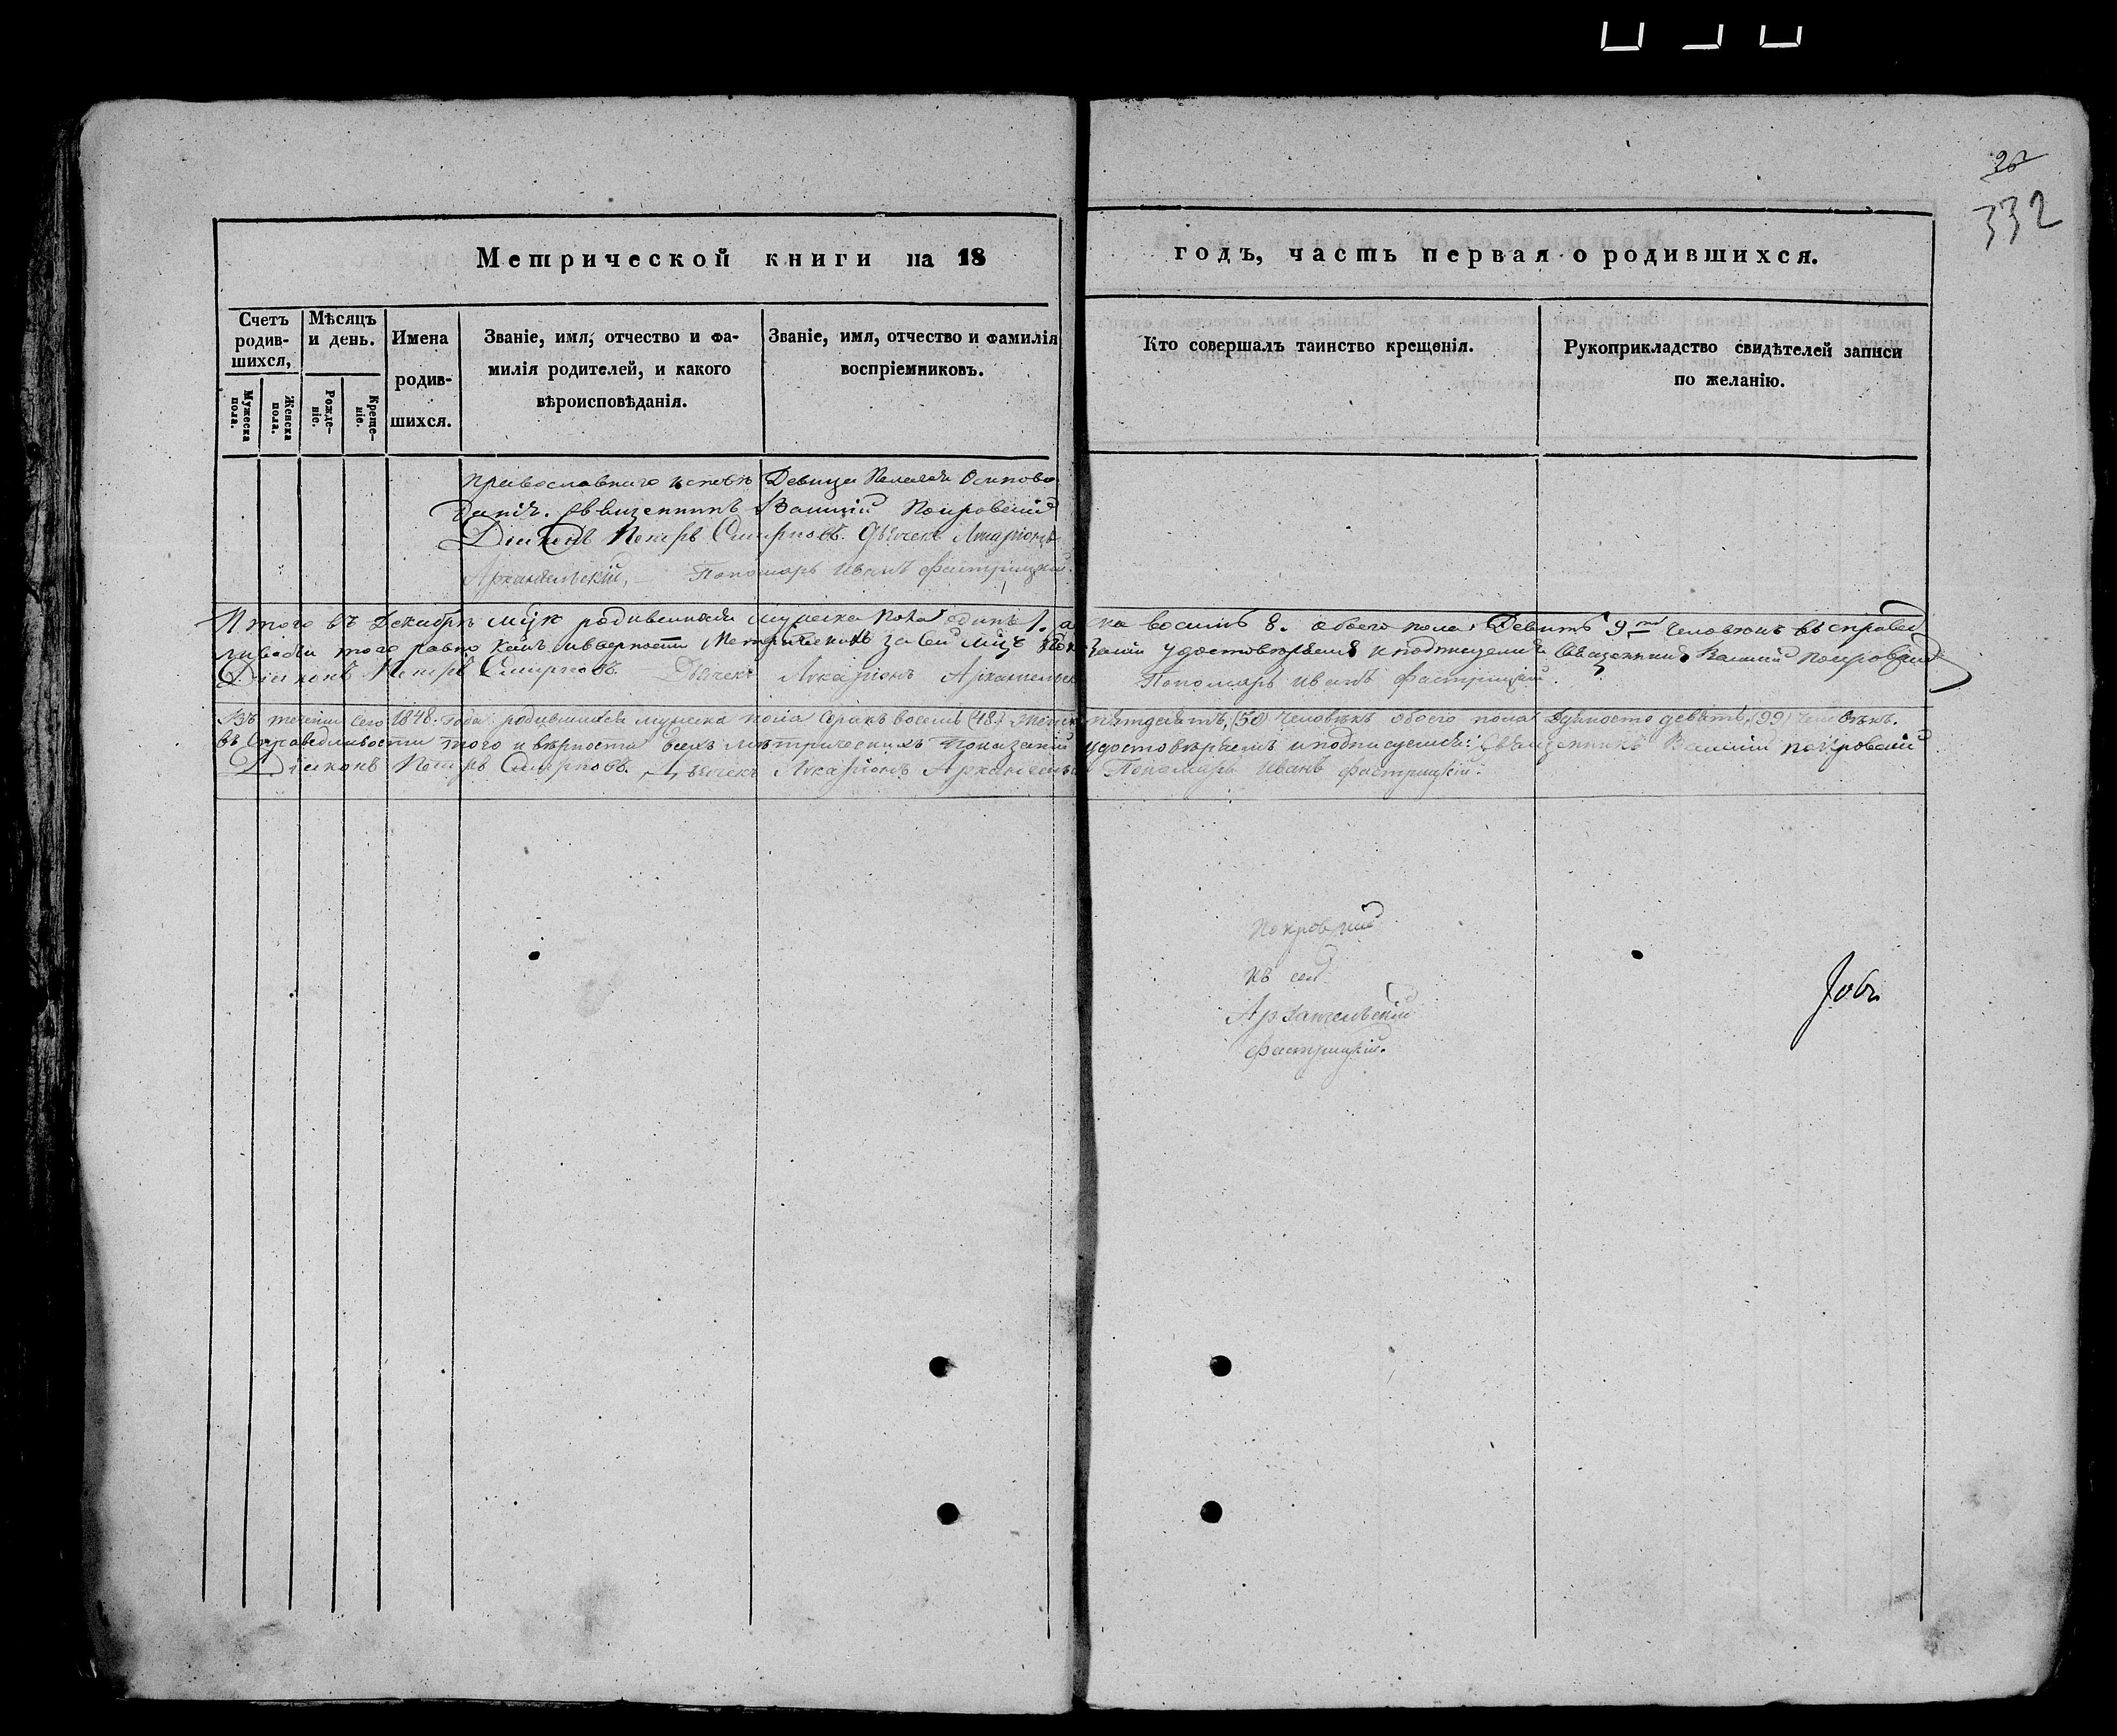 26
332
Метрической книги на 18 годъ, часть первая о родившихся.
Счетъ родив-шихся,
Мѣсяцъ и день.
Имена родив-шихся.
Званіе, имя, отчество и фа-милія родителей, и какого вѣроисповѣданія.
Званіе, имя, отчество и фамилія воспріемниковъ.
Кто совершалъ таинство крещенія.
Рукоприкладство свидѣтелей записи по желанію.
Мужеска пола.
Женска пола.
Рожде-ніе.
Креще-ніе.
православнаго исповѣ Девица Пелагея Осипова
данія. Священникъ Василій Покровскій
Діаконъ Петръ Смирновъ. Дьячекъ
Архангельскій, Пономарь Иванъ
Итого въ Декабрѣ м͠цѣ родившихся мужеска пола одинъ 1. а ска восимь 8. обоего пола Девить 9 человѣкъ въ справед
ливости того равно и верности Метрическихъ за сей м͠цъ показаній удостовѣряемъ и подписуемся Священникъ Василій Покровскій
Діаконъ Петръ Смирновъ. Дьячекъ Архангельскій Пономарь Иванъ
Въ теченіи сего 1848. года родившихся мужеска пола сорокъ восемь (48.) Женска пятдесятъ, (50) человѣкъ обоего пола Девяносто девять, (99) человѣкъ.
въ справедливости того и вѣрности всехъ метрическихъ показаній удостовѣряемъ и подписуемся: Священникъ Василій Покровскій
Діаконъ Петръ Смирновъ. Дьячекъ Архангельскій Пономарь Иванъ
Покровскій
къ сей
Архангельскій